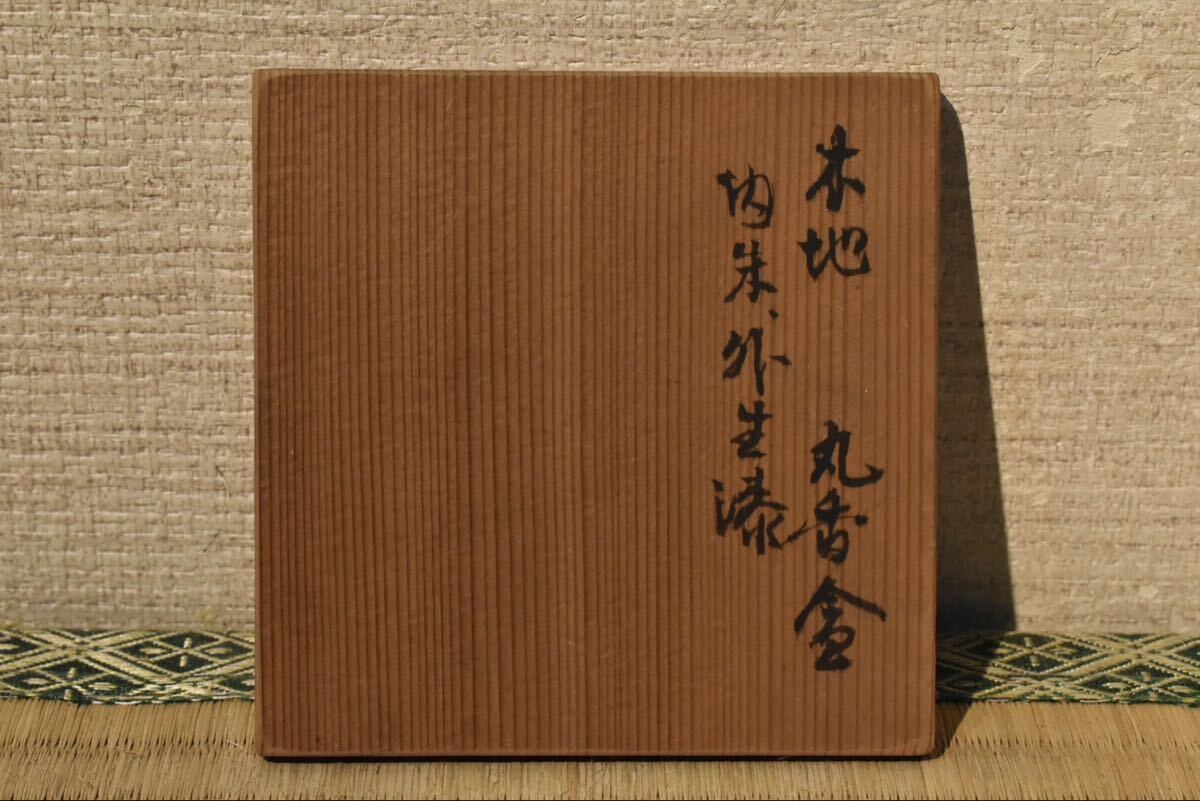 木地 丸香盒
内朱、外生漆